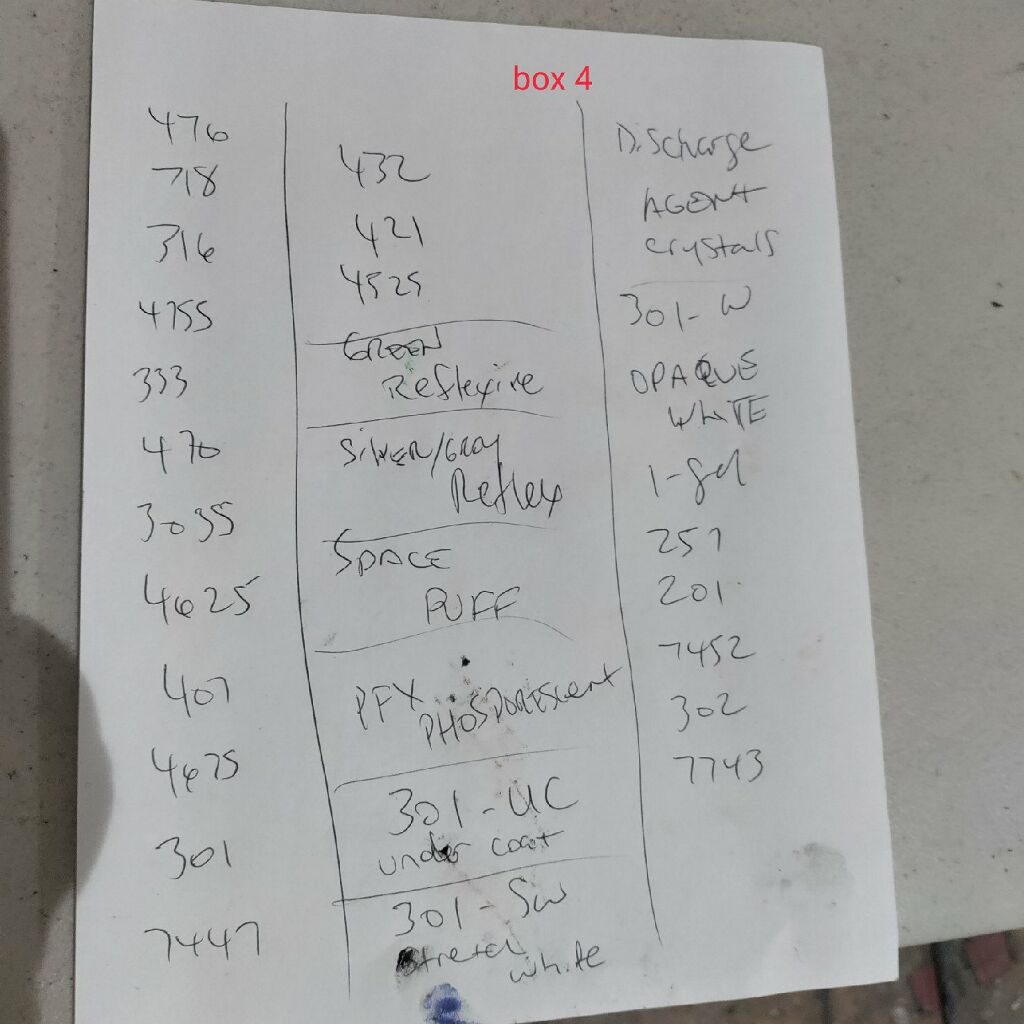 box 4
476
718
316
4755
333
470
3035
4625
407
4675
301
7447
432
421
4525
GREEN
Reflexive
SilvER/GRAY
Reflex
SPACE
PUFF
PFX
PHOSPORESCENT
301-UC
under coat
301-SW
Stretch
white
Discharge
AGENT
crystals
301-W
OPAQUE
WHITE
1-gel
257
201
7452
302
7743